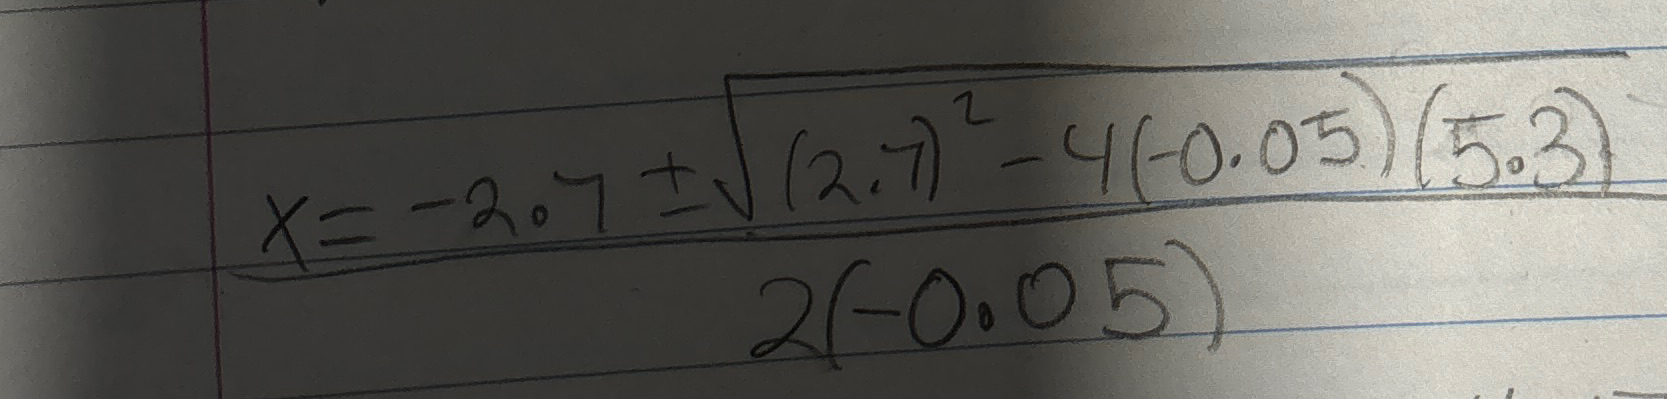 x = -2.7 ± √(2.7)² - 4(-0.05)(5.3)
2(-0.05)